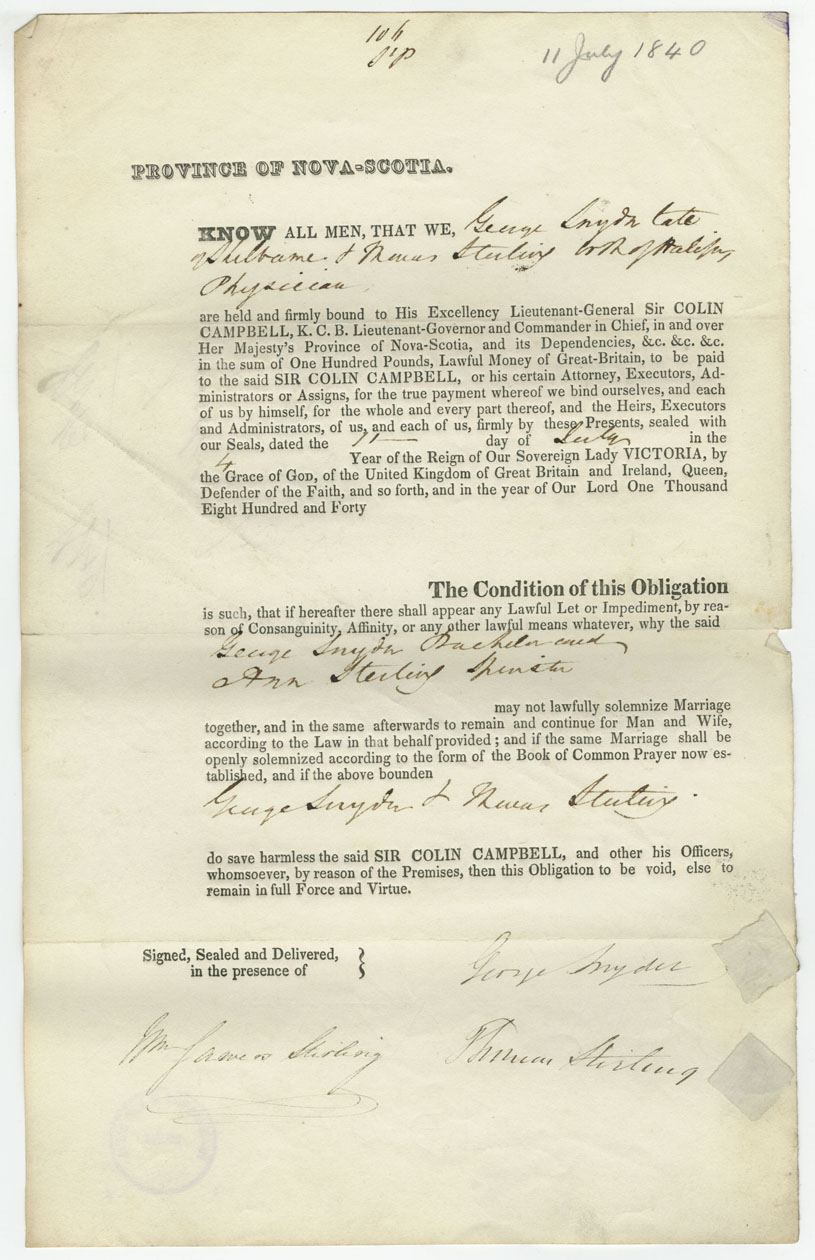 11 July 1840
PROVINCE OF NOVA-SCOTIA.
KNOW ALL MEN, THAT WE, George Snyder late
of Shelburne & Thomas Sterling both of Halifax,
Physician
are held and firmly bound to His Excellency Lieutenant-General Sir COLIN
CAMPBELL, K. C. B. Lieutenant-Governor and Commander in Chief, in and over
Her Majesty's Province of Nova-Scotia, and its Dependencies, &c. &c. &c.
in the sum of One Hundred Pounds, Lawful Money of Great-Britain, to be paid
to the said SIR COLIN CAMPBELL, or his certain Attorney, Executors, Ad-
ministrators or Assigns, for the true payment whereof we bind ourselves, and each
of us by himself, for the whole and every part thereof, and the Heirs, Executors
and Administrators, of us, and each of us, firmly by these Presents, sealed with
our Seals, dated the 11 day of July in the
4 Year of the Reign of Our Sovereign Lady VICTORIA, by
the Grace of God, of the United Kingdom of Great Britain and Ireland, Queen,
Defender of the Faith, and so forth, and in the year of Our Lord One Thousand
Eight Hundred and Forty
The Condition of this Obligation
is such, that if hereafter there shall appear any Lawful Let or Impediment, by rea-
son of Consanguinity, Affinity, or any other lawful means whatever, why the said
George Snyder Bachelor and
Ann Sterling Spinster
may not lawfully solemnize Marriage
together, and in the same afterwards to remain and continue for Man and Wife,
according to the Law in that behalf provided ; and if the same Marriage shall be
openly solemnized according to the form of the Book of Common Prayer now es-
tablished, and if the above bounden
George Snyder & Thomas Sterling.
do save harmless the said SIR COLIN CAMPBELL, and other his Officers,
whomsoever, by reason of the Premises, then this Obligation to be void, else to
remain in full Force and Virtue.
Signed, Sealed and Delivered,
in the presence of
George Snyder
Wm James Stirling
Thomas Stirling